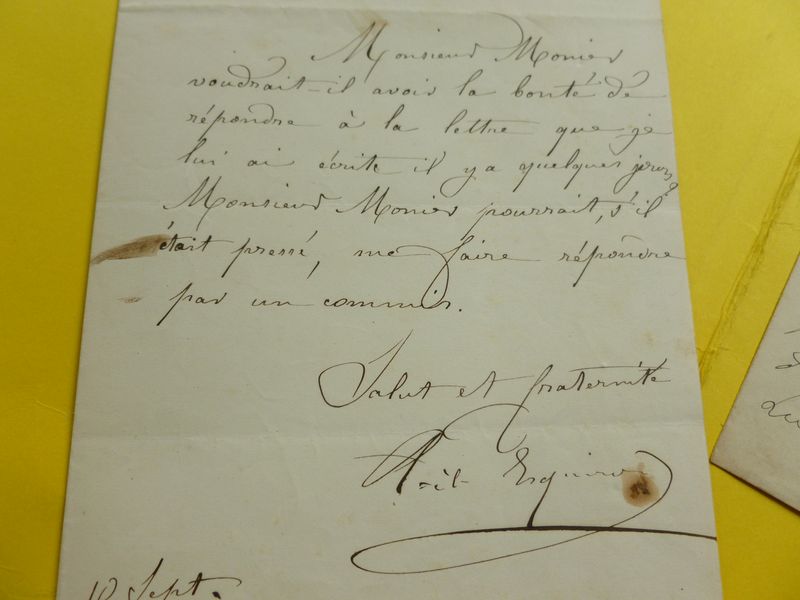 Monsieur Monier
voudrait-il avoir la bonté de
répondre à la lettre que je
lui ai écrite il y a quelques jours?
Monsieur Monier pourrait, s'il
était pressé, me faire répondre
par un commis.
Salut et fraternité
Esquiros
10 Sept.